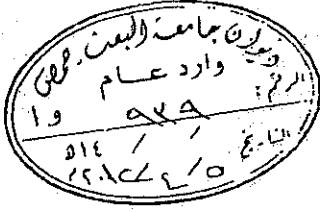 ديوان جامعة البعث - حمص
وارد عام
الرقم : ٩٣٩ و ١
/ / ١٤ هـ
التاريخ ٥ / ٤ / ٢٠١٢ م